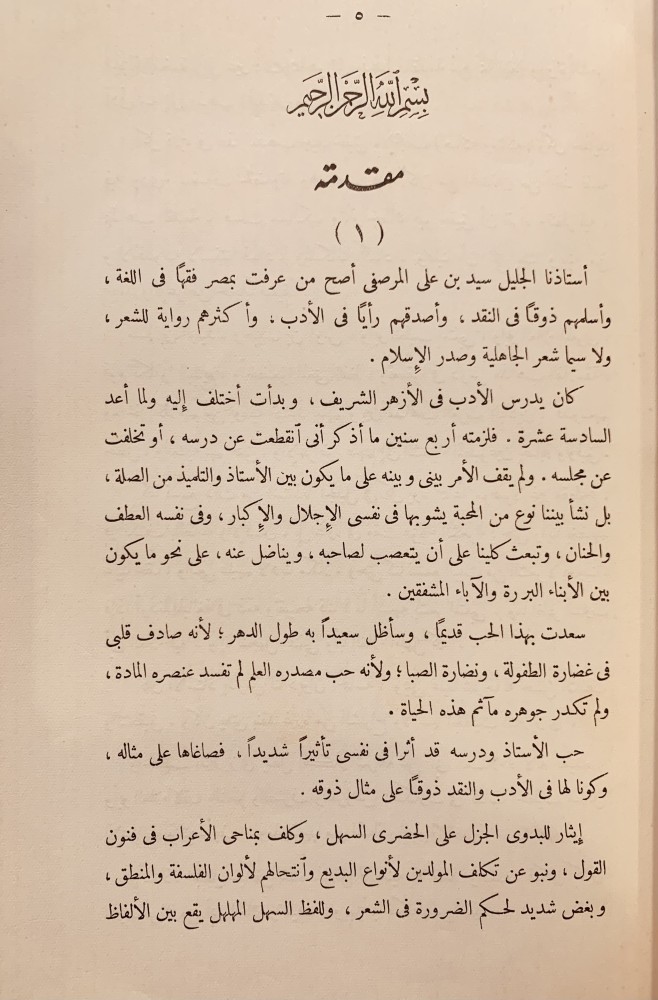 — ٥ —
بسم ٱلله الرحمن الرحيم
مقدمته
( ١ )
أستاذنا الجليل سيد بن على المرصفى أصح من عرفت بمصر فقهًا فى اللغة ،
وأسلمهم ذوقًا فى النقد ، وأصدقهم رأيًا فى الأدب ، وأكثرهم رواية للشعر ،
ولا سيما شعر الجاهلية وصدر الإسلام .
كان يدرس الأدب فى الأزهر الشريف ، وبدأت أختلف إليه ولما أعد
السادسة عشرة . فلزمته أربع سنين ما أذكر أنى ٱنقطعت عن درسه ، أو تخلفت
عن مجلسه . ولم يقف الأمر بينى وبينه على ما يكون بين الأستاذ والتلميذ من الصلة ،
بل نشأ بيننا نوع من المحبة يشوبها فى نفسى الإجلال والإكبار ، وفى نفسه العطف
والحنان ، وتبعث كلينا على أن يتعصب لصاحبه ، ويناضل عنه ، على نحو ما يكون
بين الأبناء البررة والآباء المشفقين .
سعدت بهذا الحب قديمًا ، وسأظل سعيداً به طول الدهر ؛ لأنه صادف قلبى
فى غضارة الطفولة ، ونضارة الصبا ؛ ولأنه حب مصدره العلم لم تفسد عنصره المادة ،
ولم تكدر جوهره مآثم هذه الحياة .
حب الأستاذ ودرسه قد أثرا فى نفسى تأثيراً شديداً ، فصاغاها على مثاله ،
وكونا لها فى الأدب والنقد ذوقًا على مثال ذوقه .
إيثار للبدوى الجزل على الحضرى السهل ، وكلف بمناحى الأعراب فى فنون
القول ، ونبو عن تكلف المولدين لأنواع البديع وٱنتحالهم لألوان الفلسفة والمنطق ،
وبغض شديد لحكم الضرورة فى الشعر ، وللفظ السهل المهلهل يقع بين الألفاظ